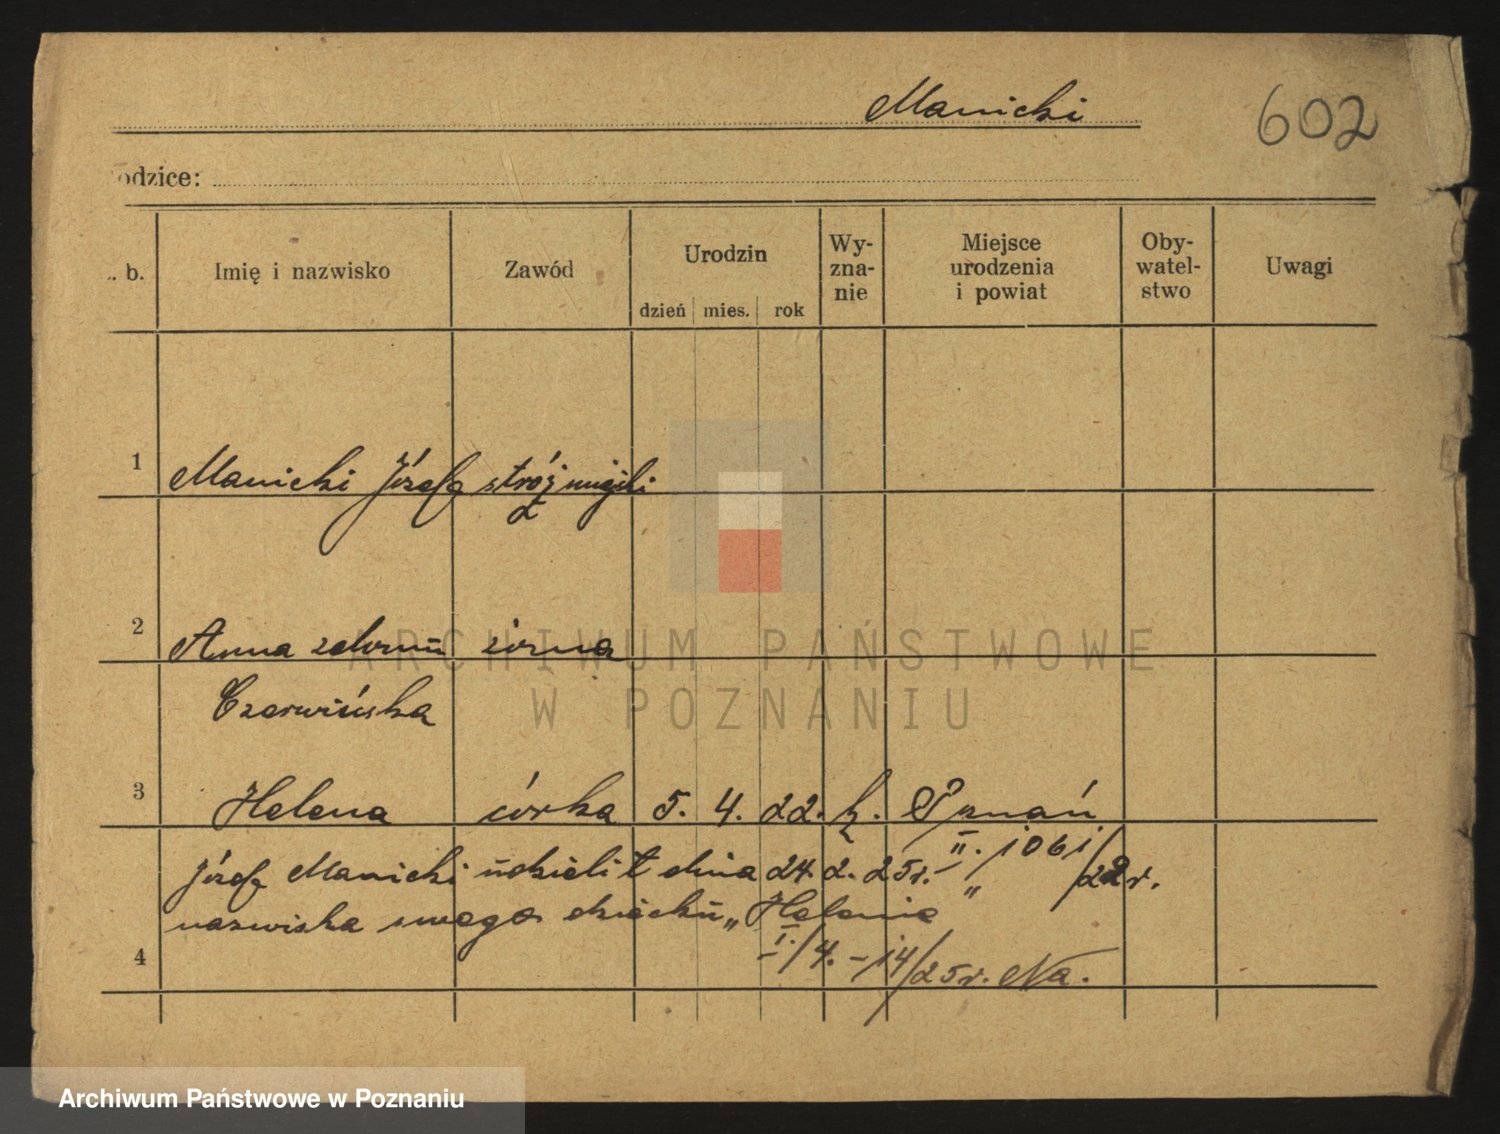 Manicki
602
odzice:
. b.
Imię i nazwisko
Zawód
Urodzin
dzień mies. rok
Wy-
zna-
nie
Miejsce
urodzenia
i powiat
Oby-
watel-
stwo
Uwagi
1 Manicki Józef stróż miejski
2 Anna żona
Czerwińska
3 Helena córka 5. 4. 22. k. Poznań
II. 1061/22r.
Józef Manicki udzielił dnia 24. 2. 25r. "
nazwiska swego dziecku „Helenie
I./4. - 14/25r. Na.
4
ARCHIWUM PAŃSTWOWE
W POZNANIU
Archiwum Państwowe w Poznaniu